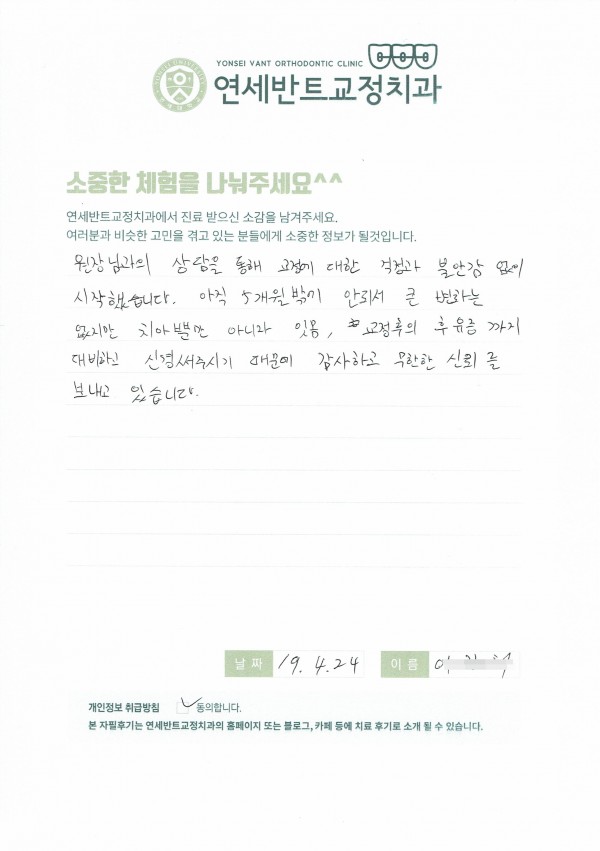 YONSEI VANT ORTHODONTIC CLINIC
연세반트교정치과
소중한 체험을 나눠주세요^^
연세반트교정치과에서 진료 받으신 소감을 남겨주세요.
여러분과 비슷한 고민을 겪고 있는 분들에게 소중한 정보가 될것입니다.
원장님과의 상담을 통해 교정에 대한 걱정과 불안감 없이
시작했습니다. 아직 5개월밖에 안되서 큰 변화는
없지만 치아뿐만 아니라 잇몸, 교정후의 후유증 까지
대비하고 신경써주시기 때문에 감사하고 무한한 신뢰를
보내고 있습니다.
날짜 19. 4. 24 이름 이
개인정보 취급방침 ✓동의합니다.
본 자필후기는 연세반트교정치과의 홈페이지 또는 블로그, 카페 등에 치료 후기로 소개 될 수 있습니다.